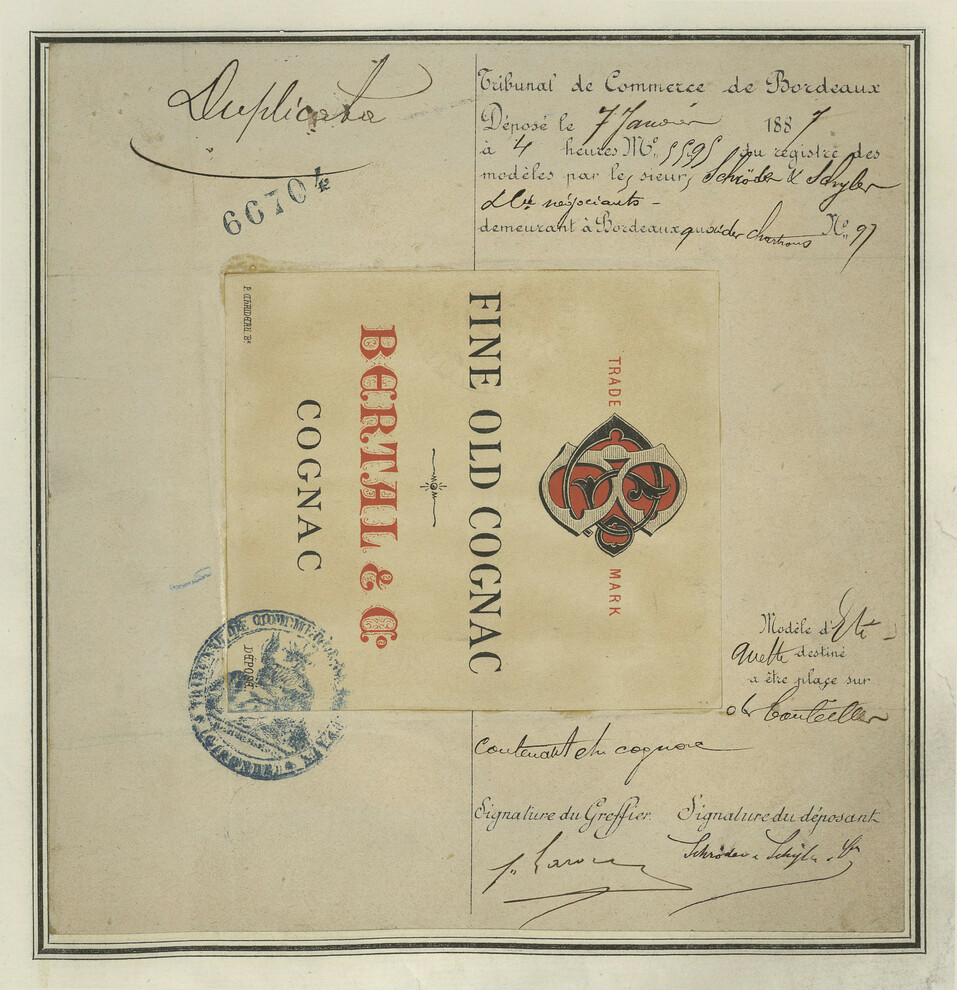 Duplicata
66704
Tribunal de Commerce de Bordeaux
Déposé le 7 Janvier 1887
à 4 heures No. 5595 du registre des
modèles par les sieurs Schröder & Schyler
& Cie négociants -
demeurant à Bordeaux quai des Chartrons No. 97
TRADE MARK
FINE OLD COGNAC
BERTAL & Co
COGNAC
DÉPOSÉ
TRIBUNAL DE COMMERCE
Modèle d'Eti-
quette destiné
a être place sur
des bouteilles
contenant du cognac
Signature du Greffier. Signature du déposant
Schröder & Schyler & Cie